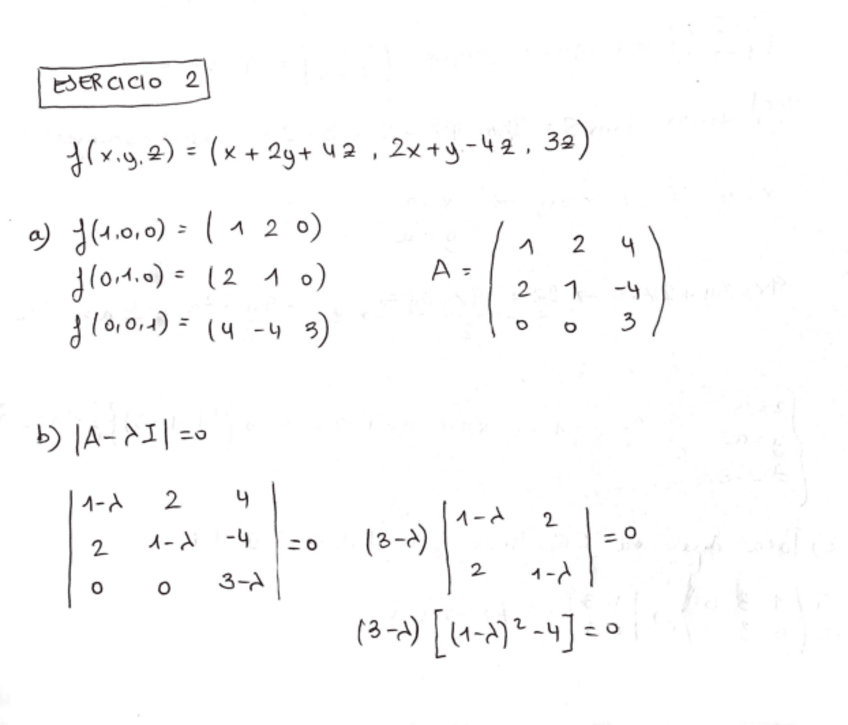 EJERCICIO 2
f(x,y,z) = (x + 2y + 4z , 2x + y - 4z , 3z)
a) f(1,0,0) = ( 1 2 0)
f(0,1,0) = (2 1 0)
f(0,0,1) = (4 -4 3)
A =
1 2 4
2 1 -4
0 0 3
b) |A-λI| = 0
|1-λ 2 4|
|2 1-λ -4| = 0
|0 0 3-λ|
(3-λ) |1-λ 2| = 0
|2 1-λ|
(3-λ) [(1-λ)² - 4] = 0